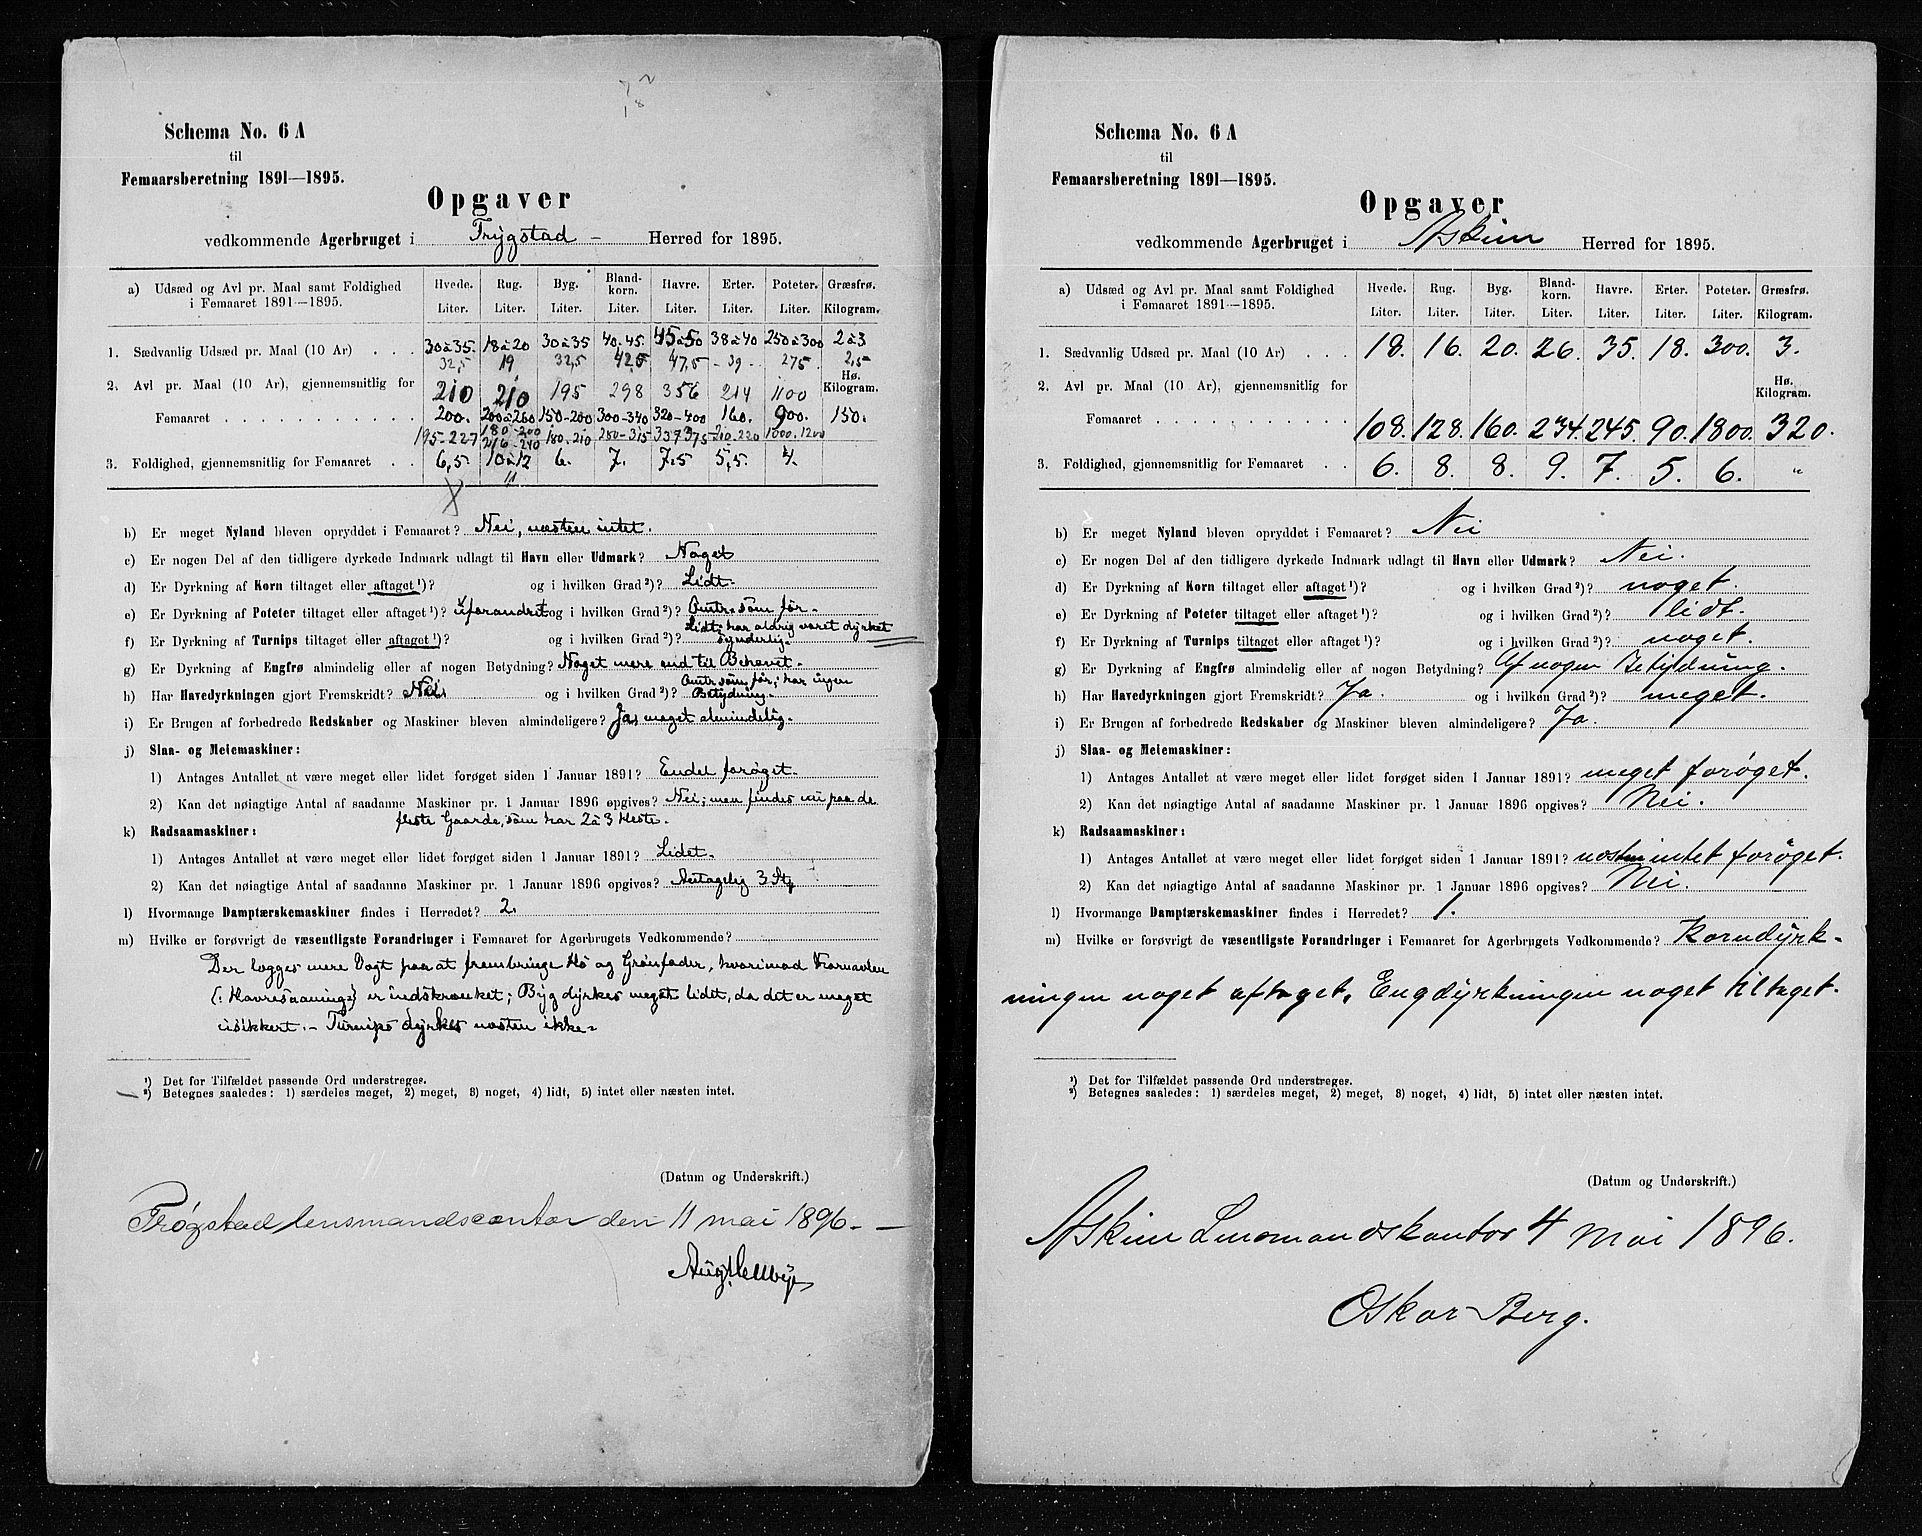 Schema No. 6 A
til
Femaarsberetning 1891—1895.
Opgaver
vedkommende Agerbruget i Trygstad - Herred for 1895.
a) Udsæd og Avl pr. Maal samt Foldighed i Femaaret 1891—1895. | Hvede. Liter. | Rug. Liter. | Byg. Liter. | Bland-korn. Liter. | Havre. Liter. | Erter. Liter. | Poteter. Liter. | Græsfrø. Kilogram.
1. Sædvanlig Udsæd pr. Maal (10 Ar) . . . 30 à 35. 18 à 20 30 à 35 40-45. 45 à 50 38 à 40 250 à 300 2 à 3
32,5 19 32,5 42,5 47,5 - 39 - 275 2,5
Hø.
2. Avl pr. Maal (10 Ar), gjennemsnitlig for 210 210 195 298 356 214 1100 Kilogram.
Femaaret . . . . . . . . . . 200. 200 à 260 150-200 300-340 320-400 160. 900. 150.
195-227 180-200 180-210 280-315 337 375 210-220 1000.1200
216-240
3. Foldighed, gjennemsnitlig for Femaaret . . 6,5. 10 à 12 6. 7. 7.5 5,5. 4.
11
b) Er meget Nyland bleven opryddet i Femaaret? Nei, næsten intet.
c) Er nogen Del af den tidligere dyrkede Indmark udlagt til Havn eller Udmark? Noget
d) Er Dyrkning af Korn tiltaget eller aftaget ¹)? og i hvilken Grad ²)? Lidt.
e) Er Dyrkning af Poteter tiltaget eller aftaget ¹)? Uforandret og i hvilken Grad ²)? Omtr. som før.
f) Er Dyrkning af Turnips tiltaget eller aftaget ¹)? og i hvilken Grad ²)? Lidt, har aldrig været dyrket
synderlig.
g) Er Dyrkning af Engfrø almindelig eller af nogen Betydning? Noget mere end til Behovet.
h) Har Havedyrkningen gjort Fremskridt? Nei. og i hvilken Grad ²)? Omtr. som før; har ingen
Betydning.
i) Er Brugen af forbedrede Redskaber og Maskiner bleven almindeligere? Ja, meget almindelig.
j) Slaa- og Meiemaskiner:
1) Antages Antallet at være meget eller lidet forøget siden 1 Januar 1891? Endel forøget.
2) Kan det nøiagtige Antal af saadanne Maskiner pr. 1 Januar 1896 opgives? Nei; men findes nu paa de
fleste Gaarde, som har 2 à 3 Heste.
k) Radsaamaskiner:
1) Antages Antallet at være meget eller lidet forøget siden 1 Januar 1891? Lidet.
2) Kan det nøiagtige Antal af saadanne Maskiner pr. 1 Januar 1896 opgives? Antagelig 3 Stk
l) Hvormange Damptærskemaskiner findes i Herredet? 2.
m) Hvilke er forøvrigt de væsentligste Forandringer i Femaaret for Agerbrugets Vedkommende?
Der lægges mere Vægt paa at frembringe Hø og Grønfoder, hvorimod Kornavlen
(: Havresaaning :) er indskrænket; Byg dyrkes meget lidet, da det er meget
usikkert. – Turnips dyrkes næsten ikke.
¹) Det for Tilfældet passende Ord understreges.
²) Betegnes saaledes: 1) særdeles meget, 2) meget, 3) noget, 4) lidt, 5) intet eller næsten intet.
(Datum og Underskrift.)
Trøgstad lensmandscontor den 11 mai 1896. —
Schema No. 6 A
til
Femaarsberetning 1891—1895.
Opgaver
vedkommende Agerbruget i Askim Herred for 1895.
a) Udsæd og Avl pr. Maal samt Foldighed i Femaaret 1891—1895. | Hvede. Liter. | Rug. Liter. | Byg. Liter. | Bland-korn. Liter. | Havre. Liter. | Erter. Liter. | Poteter. Liter. | Græsfrø. Kilogram.
1. Sædvanlig Udsæd pr. Maal (10 Ar) . . . 18. 16. 20. 26. 35. 18. 300. 3.
2. Avl pr. Maal (10 Ar), gjennemsnitlig for Hø. Kilogram.
Femaaret . . . . . . . . . . 108. 128. 160. 234. 245. 90. 1800. 320.
3. Foldighed, gjennemsnitlig for Femaaret . . 6. 8. 8. 9. 7. 5. 6. "
b) Er meget Nyland bleven opryddet i Femaaret? Nei
c) Er nogen Del af den tidligere dyrkede Indmark udlagt til Havn eller Udmark? Nei.
d) Er Dyrkning af Korn tiltaget eller aftaget ¹)? og i hvilken Grad ²)? noget.
e) Er Dyrkning af Poteter tiltaget eller aftaget ¹)? og i hvilken Grad ²)? lidt.
f) Er Dyrkning af Turnips tiltaget eller aftaget ¹)? og i hvilken Grad ²)? noget.
g) Er Dyrkning af Engfrø almindelig eller af nogen Betydning? Af nogen Betydning.
h) Har Havedyrkningen gjort Fremskridt? Ja. og i hvilken Grad ²)? meget.
i) Er Brugen af forbedrede Redskaber og Maskiner bleven almindeligere? Ja.
j) Slaa- og Meiemaskiner:
1) Antages Antallet at være meget eller lidet forøget siden 1 Januar 1891? meget forøget.
2) Kan det nøiagtige Antal af saadanne Maskiner pr. 1 Januar 1896 opgives? Nei.
k) Radsaamaskiner:
1) Antages Antallet at være meget eller lidet forøget siden 1 Januar 1891? næsten intet forøget.
2) Kan det nøiagtige Antal af saadanne Maskiner pr. 1 Januar 1896 opgives? Nei.
l) Hvormange Damptærskemaskiner findes i Herredet? 1.
m) Hvilke er forøvrigt de væsentligste Forandringer i Femaaret for Agerbrugets Vedkommende? Korndyrk-
ningen noget aftaget, Engdyrkningen noget tiltaget.
¹) Det for Tilfældet passende Ord understreges.
²) Betegnes saaledes: 1) særdeles meget, 2) meget, 3) noget, 4) lidt, 5) intet eller næsten intet.
(Datum og Underskrift.)
Askim Lensmandskontor 4 Mai 1896.
Oskar Berg.